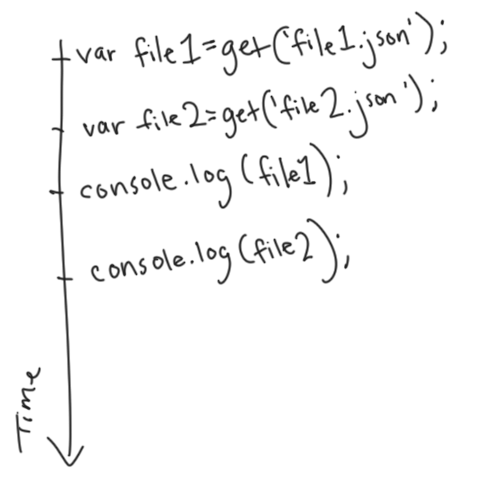 var file1=get('file1.json');
var file2=get('file2.json');
console.log(file1);
console.log(file2);
Time